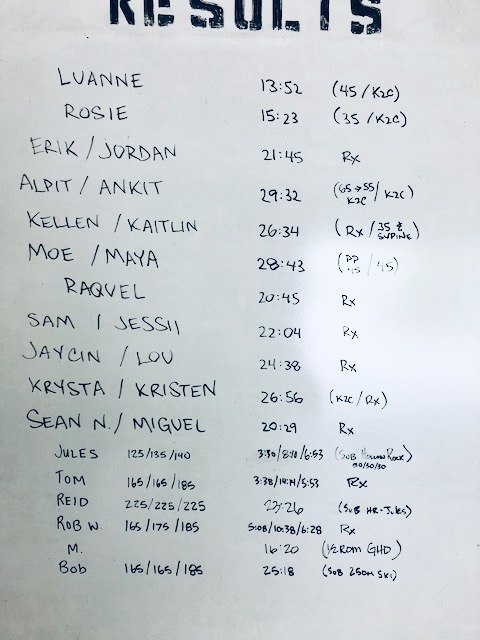 RESULTS
LUANNE 13:52 (45/K2C)
ROSIE 15:23 (35/K2C)
ERIK/JORDAN 21:45 Rx
ALPIT/ANKIT 29:32 (65→55/K2C)
K2C
KELLEN/KAITLIN 26:34 (Rx/35 &
SUPINE)
MOE/MAYA 28:43 (PP/45)
45
RAQUEL 20:45 Rx
SAM/JESSII 22:04 Rx
JAYCIN/LOU 24:38 Rx
KRYSTA/KRISTEN 26:56 (K2C/Rx)
SEAN N./MIGUEL 20:29 Rx
JULES 125/135/140 3:30/8:10/6:53 (SUB HOLLOW ROCK)
50/30/30
TOM 165/165/185 3:38/14:14/5:53 Rx
REID 225/225/225 23:26 (SUB HR-JULES)
ROB W. 165/175/185 5:08/10:38/6:28 Rx
M. 16:20 (1/2 ROM GHD)
Bob 165/165/185 25:18 (SUB 250M SKI)